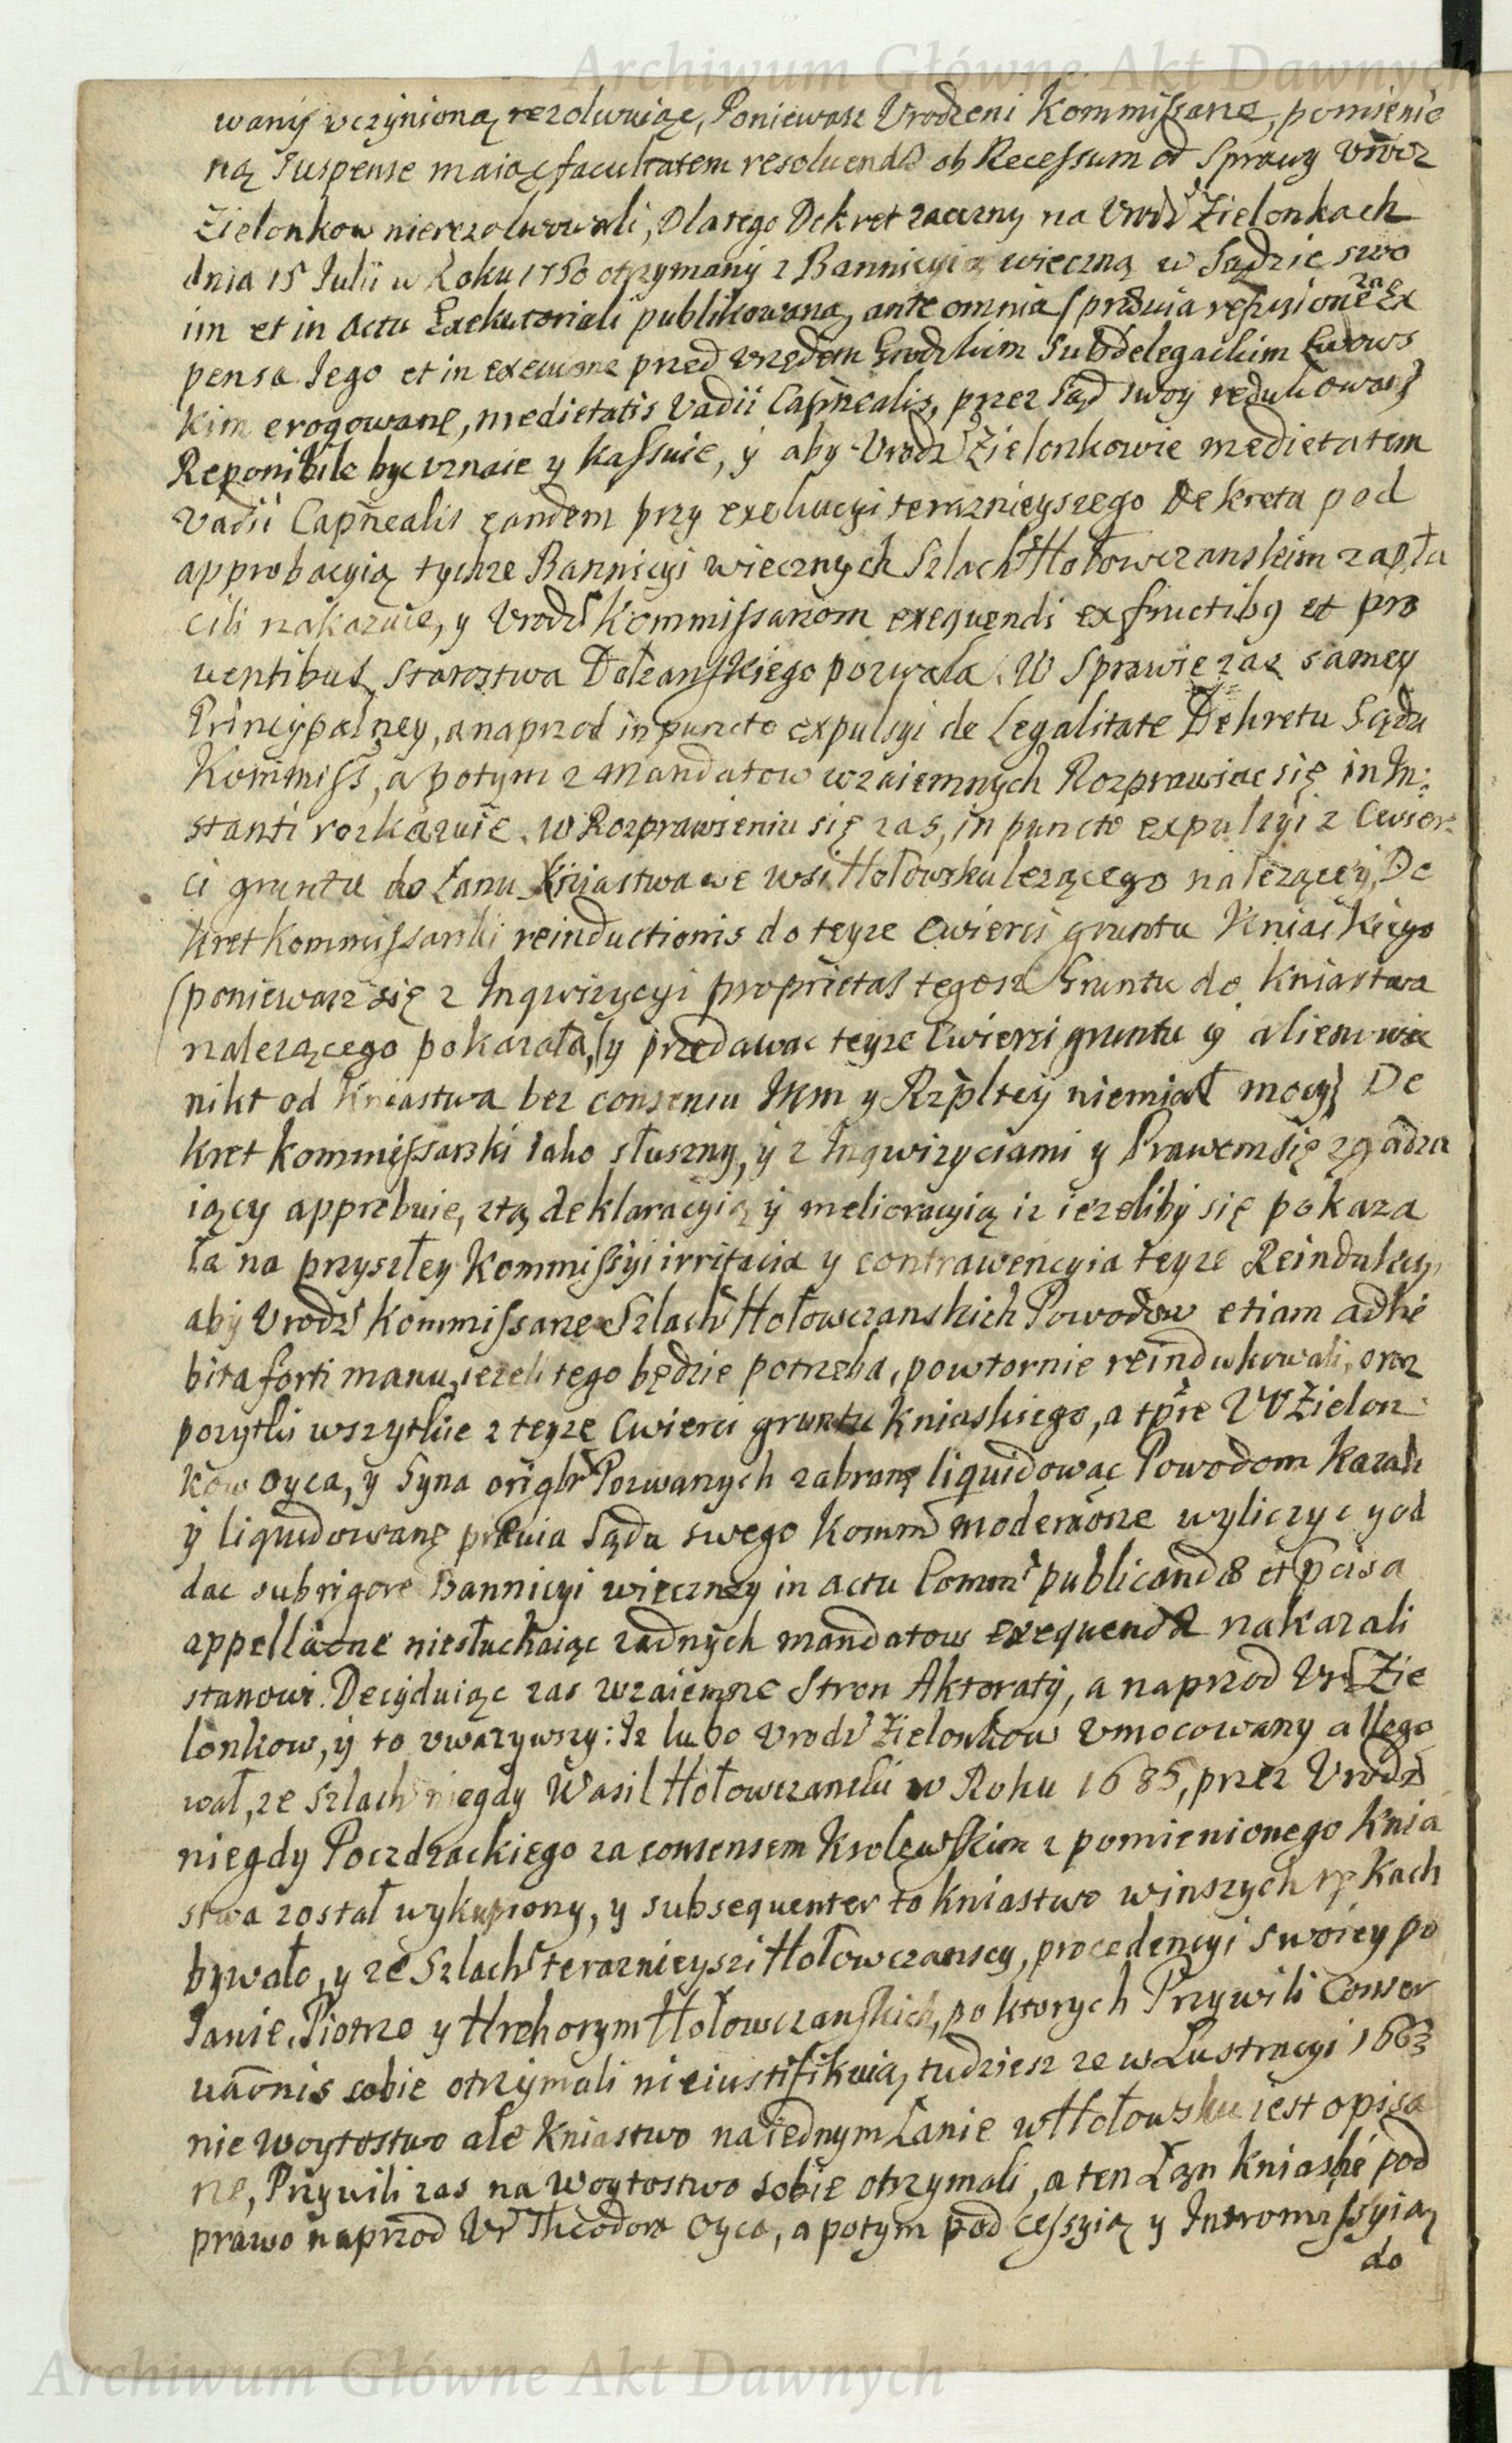 Archiwum Główne Akt Dawnych
wany vczynioną rezolwuiąc, Poniewasz Vrodzeni Kommissarze, pomienio
ną suspense maiąc facultatem resoluendæ ob Recessum od Sprawy
Zielonkow nierezolwowali, Dlatego Dekret zaoczny na Vrodz Zielonkach
dnia 15 Julii w Roku 1750 otrzymany z Bannicyią wieczną w Sądzie swo
im et in actu Exekutoriali publikowaną, ante omnia (prævia refusione za Ex
pensa Jego et in executione przed Vrzędem Grodzkim Subdelegackim Lwows
kim erogowane, medietatis Vadii Capnealis, przez Sąd swoy redukowaney)
Reponibile byc vznaie y kassuie, ÿ aby Vrodz Zielonkowie medietatem
Vadii Capnealis eandem przy exekucyi teraznieyszego Dekretu pod
approbacyią tychze Bannicyi wiecznych Szlach Hołowczanskim zapła
cili nakazuie, y Vrodz Kommissarzom exequendi ex fructibq et pro
uentibus Starostwa Dolzanskiego pozwala. W Sprawie zas samey
Principalney, a naprzod in puncto expulsyi de Legalitate Dekretu Sądu
Kommiss, a potym z Mandatow wzaiemnych Rozprawiac się in In:
stanti rozkazuie. W Rozprawieniu się zas, in puncto expulsyi z Cwier:
ci gruntu do Łanu Kniastwa we wsi Hołowsku lezącego nalezącey, De
kret Kommissarski reinductionis do teyze Cwierci gruntu Kniaskiego
(poniewasz się z Inqwizycyi proprietas tegosz Gruntu do Kniastwa
nalezącego pokazała, y przedawac teyze Cwierci gruntu ÿ alienowac
nikt od Kniastwa bez consensu JKm y Rzpltey niemiał mocy) De
kret kommissarski iako słuszny, ÿ z Inqwizyciami y Prawem się zgadza
iący approbuie, ztą deklaracyią ÿ melioracyią iz iezeliby się pokaza
ła na przyszłey Kommissyi irritacia y contrawencyia teyze Reindukcyi,
aby Vrodz Kommissarze Szlach Hołowczanskich Powodow etiam adhi
bita forti manu, iezeli tego będzie potrzeba, powtornie reindukowali, oraz
pozytki wszytkie z teyze Cwierci gruntu Kniaskiego, a tpre VV Zielon
kow Oyca, y Syna Pozwanych zabrane liquidowac Powodom kazali
ÿ liquidowanę prævia Sądu swego Komm moderaõne wyliczyc y od
dac sub rigore Bannicyi wieczney in actu Comm publicandæ et
appellaõne niesłuchaiąc zadnych mandatow exequendæ nakazali
stanowi. Decyduiąc zas wzaiemne Stron Aktoraty, a naprzod Vr Zie
lonkow, ÿ to vwazywszy: Iz lubo Vrodz Zielonkow Vmocowany allego
wał, ze Szlach niegdy Wasil Hołowczanski w Roku 1685, przez Vrodz
niegdy Poczdzackiego za consensem Krolewskim z pomienionego Knia
stwa został wykupiony, y subsequenter to kniastwo winszych rękach
bywało, y ze Szlach terazniejszi Hołowczanscy, procedencyi swoiey po
Janie, Piotrze y Hrehorym Hołowczanskich, po ktorych Przywili Conser
uaõnis sobie otrzymali nieiustifikuią, tudziesz ze w Lustracyi 1663
nie woytostwo ale Kniastwo na iednym Łanie w Hołowsku iest opisa
ne, Przywili zas na woytostwo sobie otrzymali, a ten Łan kniaski pod
prawo naprzod Vr Theodora Oyca, a potym pod cessyią y Intromissyią
do
Archiwum Główne Akt Dawnych